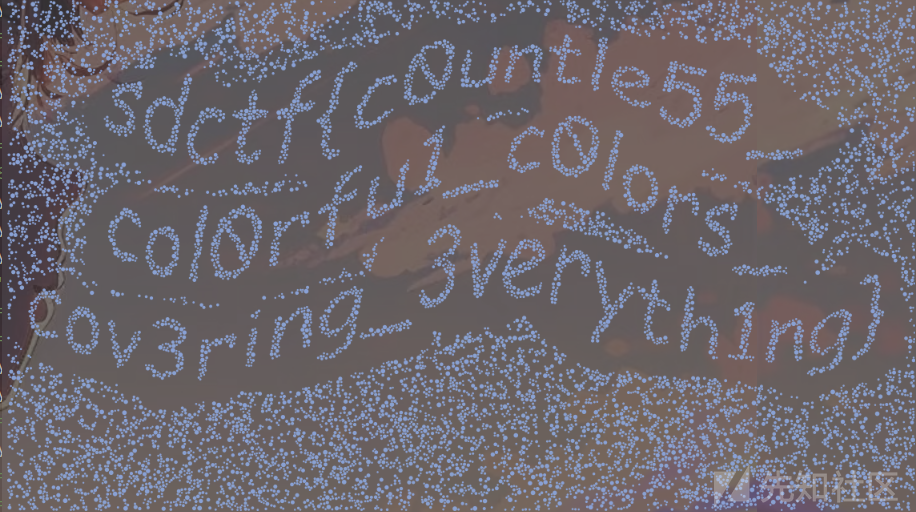 sdctf{c0untle55_
c0l0rfu1_c0lors_
cov3ring_3veryth1ng}
先知社区